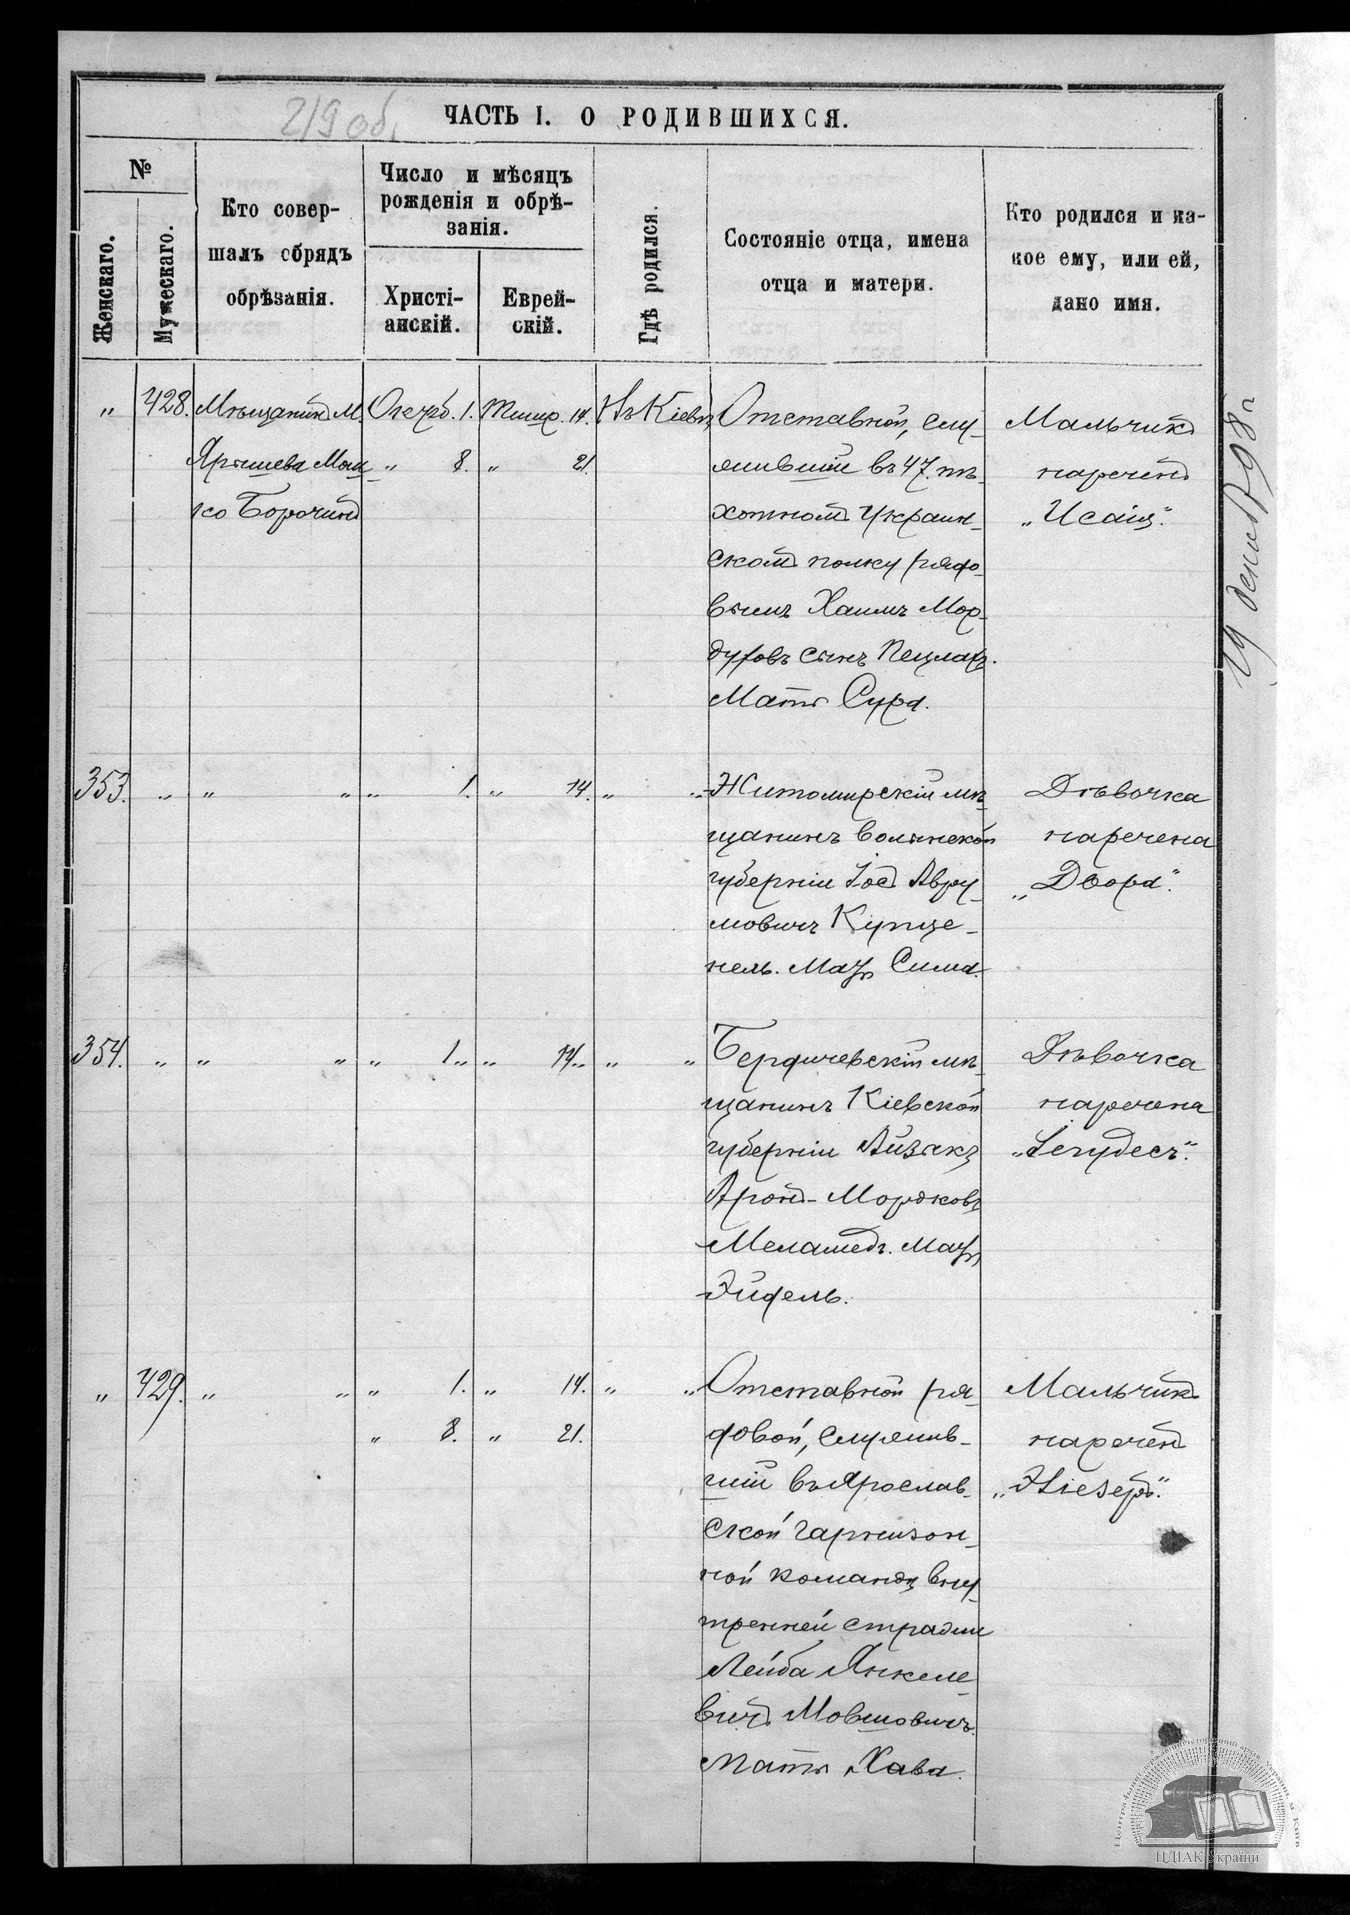 219 об.
ЧАСТЬ I. О РОДИВШИХСЯ.
№
Женскаго.
Мужескаго.
Кто совер-
шалъ обрядъ
обрѣзанія.
Число и мѣсяцъ
рожденія и обрѣ-
занія.
Христі-
анскій.
Еврей-
скій.
Гдѣ родился.
Состояніе отца, имена
отца и матери.
Кто родился и ка-
кое ему, или ей,
дано имя.
„ 428. Мѣщанинъ М. Октяб. 1. Тишр. 14. Въ Кіевѣ Отставной, слу-
Ярышева Мош- „ 8. „ 21.
ко Борочинъ
жившій въ 47. пѣ-
хотномъ Украин-
скомъ полку рядо-
вымъ Хаимъ Мор-
духовъ сынъ Пецмахъ.
Мать Сура.
Мальчикъ
нареченъ
„Исаія".
353. „ „ „ „ 1. „ 14. „ „ Житомирскій мѣ-
щанинъ Волынской
губерніи Іосъ Авру-
мовичъ Купце-
нель. Мать Сима.
Дѣвочка
наречена
„Двора".
354. „ „ „ „ 1. „ 14. „ „ Бердичевскій мѣ-
щанинъ Кіевской
губерніи Айзикъ
Аронъ-Мордковъ
Меламедъ. Мать
Эйдель.
Дѣвочка
наречена
„Іегудесъ".
„ 429. „ „ „ 1. „ 14. „ „ Отставной ря-
„ 8. „ 21.
довой, служив-
шій въ Ярослав-
ской гарнизон-
ной командѣ вну-
тренней стражи
Лейба Янкеле-
вичъ Мовшовичъ.
Мать Хава.
Мальчикъ
нареченъ
„Эліезеръ".
ЦДІАК України